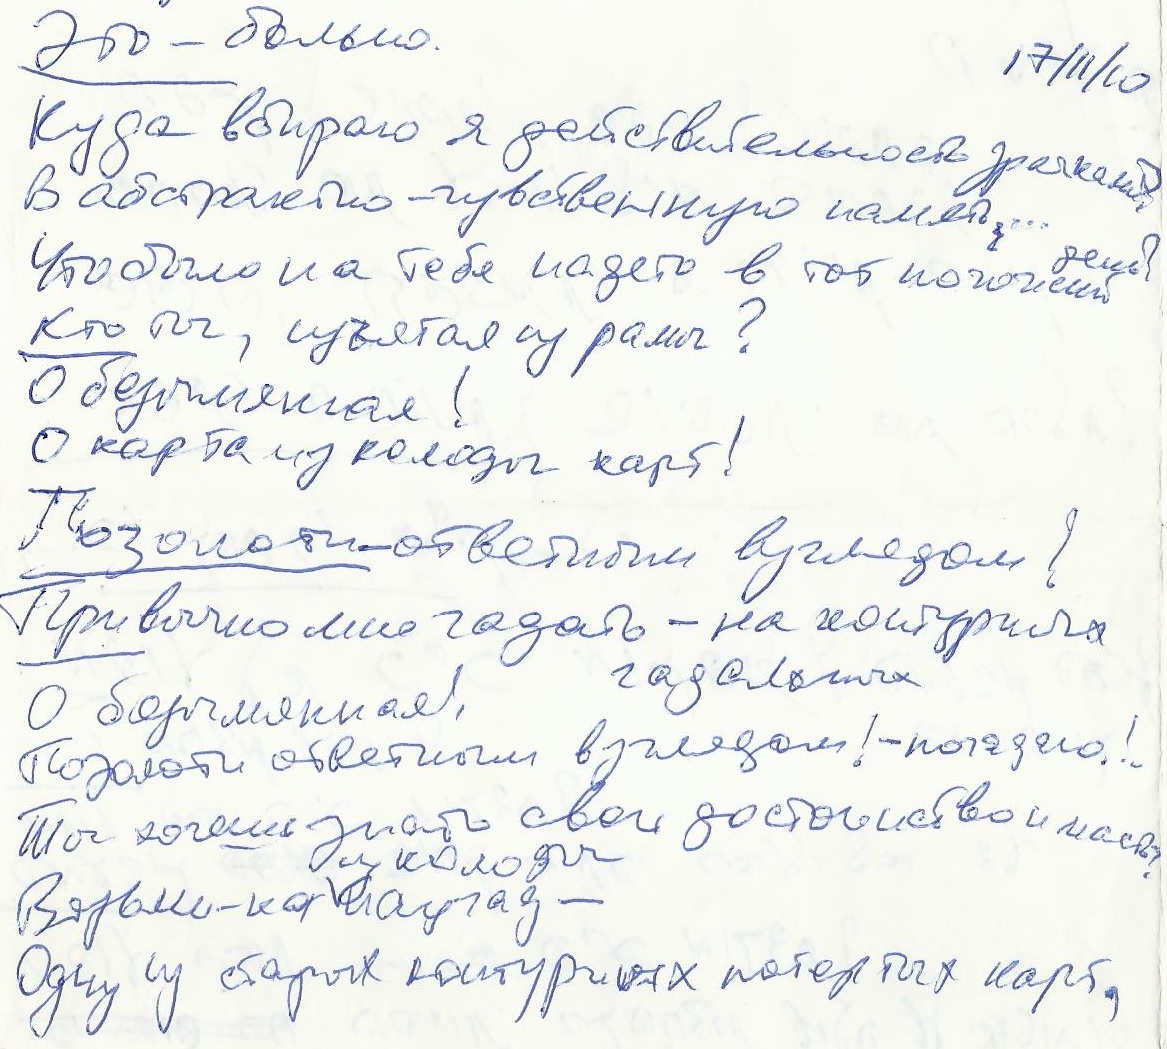 Это – больно.
17/11/10
Куда вбираю я действительность зрачками?
В абстрактно-чувственную память,...
Что было на тебе надето в тот погожий день?
Кто ты, изъятая из рамы?
О безымянная!
О карта из колоды карт!
Позолоти – ответным взглядом!
Привычно мне гадать – на контурных
гадальных
О безымянная!
Позолоти ответным взглядом! – погадаю!..
Ты хочешь знать свои достоинство и масть?
из колоды
Возьми-ка наугад –
Одну из старых контурных потертых карт,